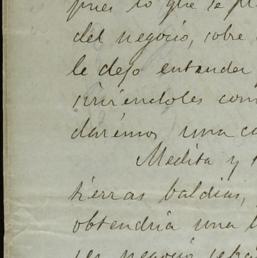 pues lo que se p
del negocio, sobre
le dejo entender
sirviendoles com
darémos una ca
Medita y
tierras baldías,
obtendría una b
ser negocio